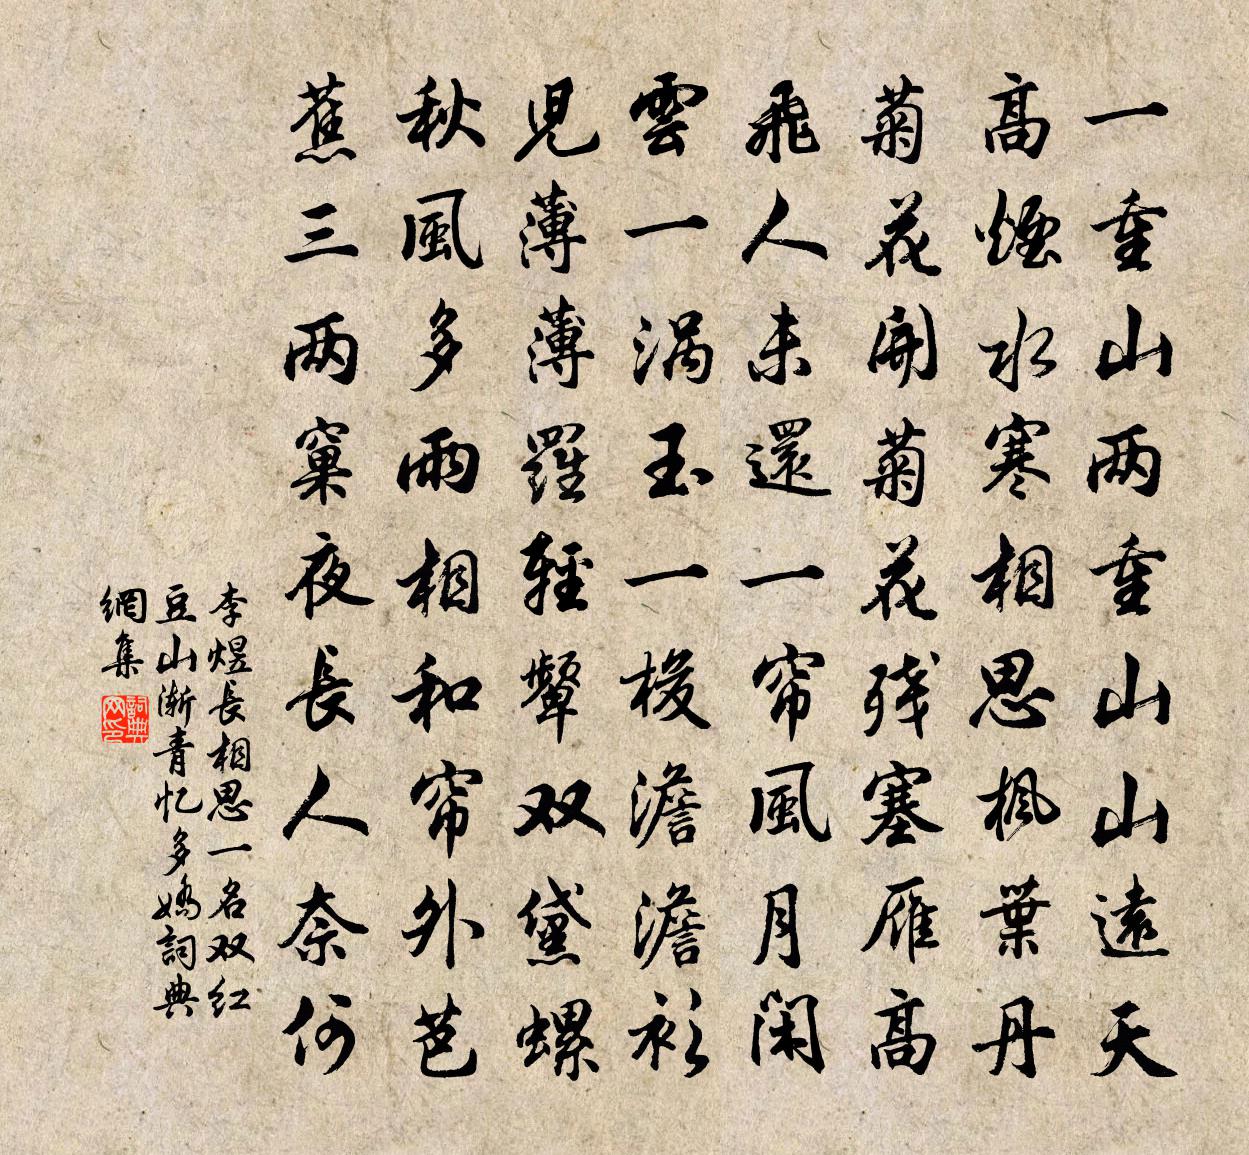 一重山兩重山山遠天
高煙水寒相思楓葉丹
菊花開菊花残塞雁高
飛人未還一帘風月閑
雲一涡玉一梭澹澹衫
児薄薄羅輕顰双黛螺
秋風多雨相和帘外芭
蕉三兩窠夜長人奈何
李煜長相思一名双红
豆山渐青忆多嬌詞典
網集
詞典网印